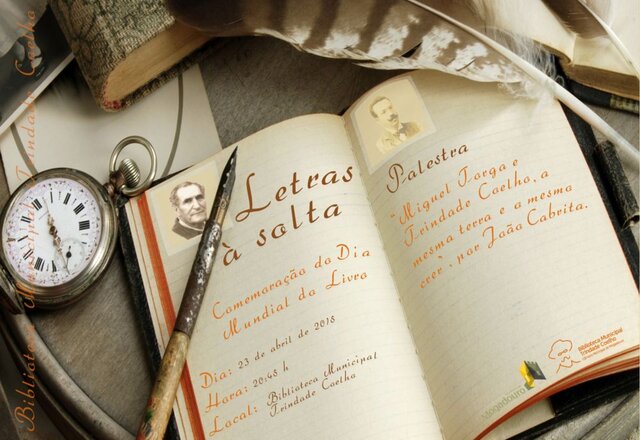 Biblioteca Municipal Trindade Coelho
Letras
à solta
Comemoração do Dia
Mundial do Livro
Dia: 23 de abril de 2015
Hora: 20:45 h
Local: Biblioteca Municipal
Trindade Coelho
Palestra
"Miguel Torga e
Trindade Coelho, a
mesma terra e a mesma
crer": por João Cabrita.
Mogadouro
Biblioteca Municipal
Trindade Coelho